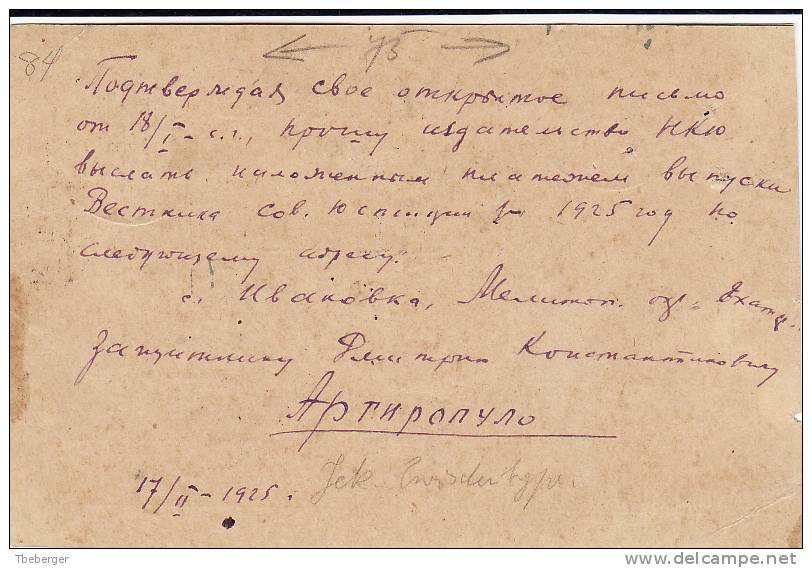 84 75
Подтверждая свое открытое письмо
от 18/I - с.г., прошу издательство НКЮ
выслать наложенным платежем выпуски
Вестника сов. Юстиции за 1925 год по
следующему адресу:
с. Ивановка, Мелитоп. окр.
Защитнику Дмитрию Константиновичу
Аргиропуло
17/II - 1925.
Tbeberger
delcampe.net